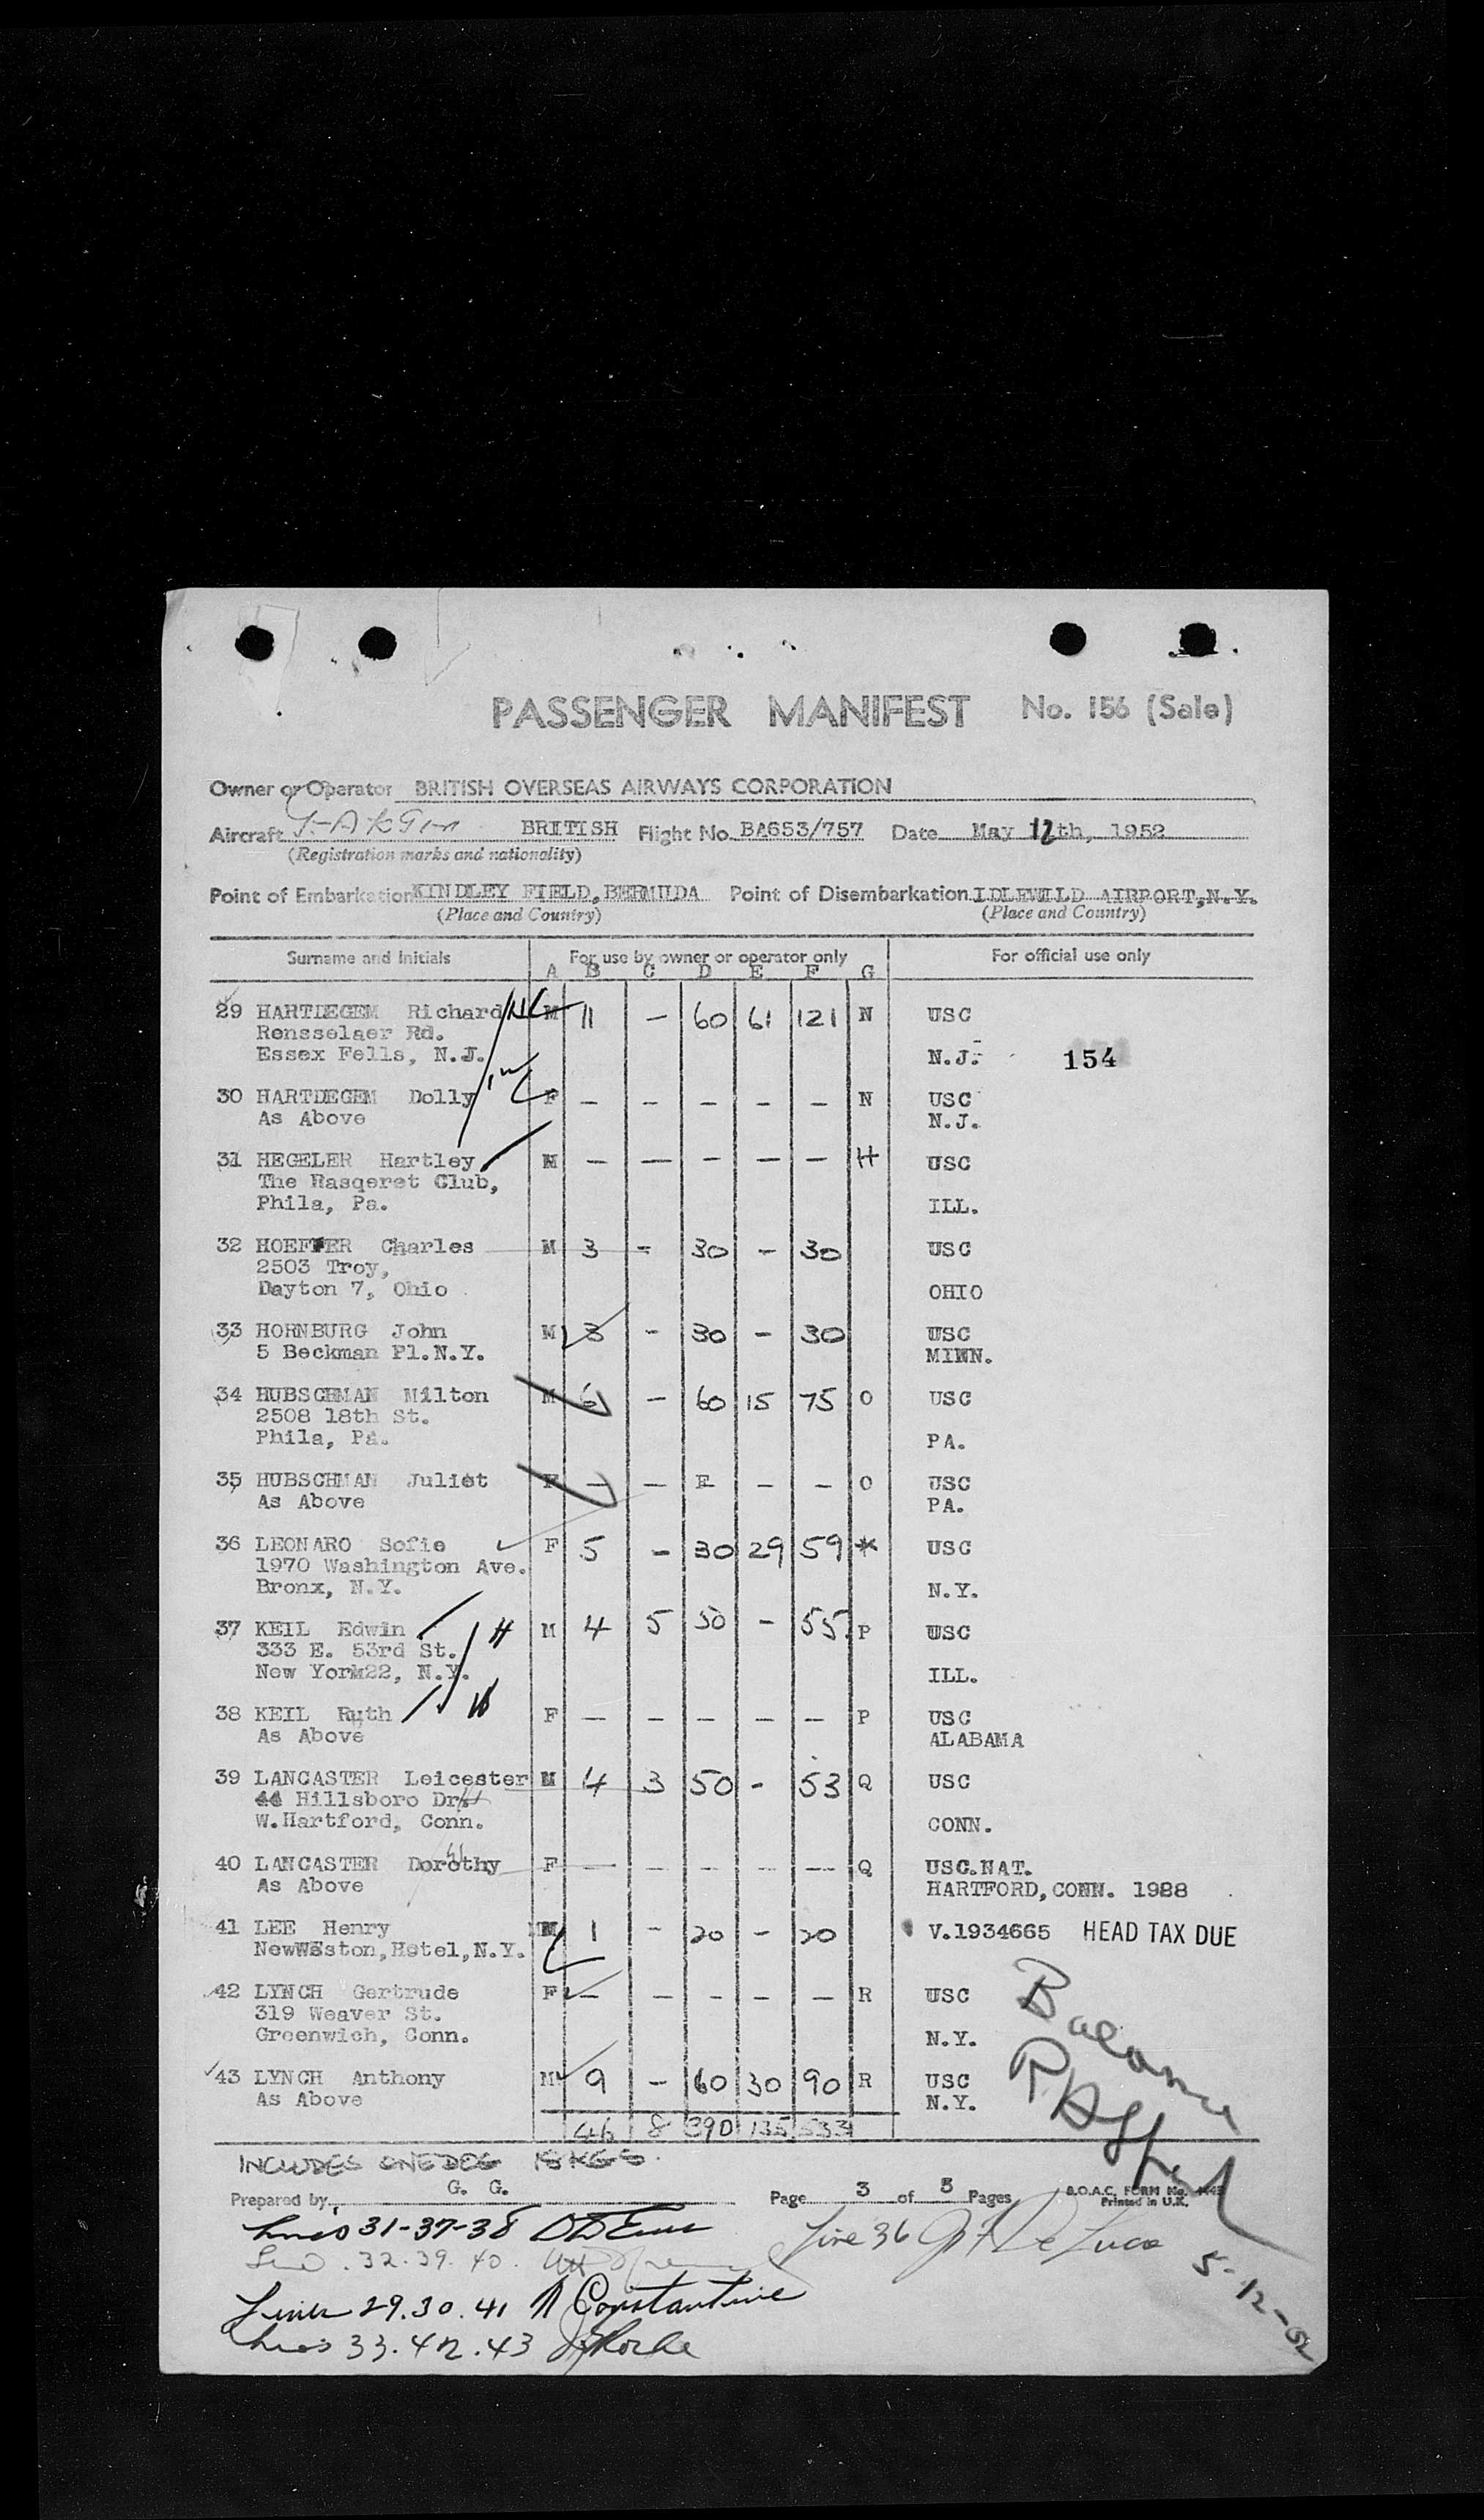 PASSENGER MANIFEST No. 156 (Sale)
Owner or Operator BRITISH OVERSEAS AIRWAYS CORPORATION
Aircraft BRITISH Flight No. BA653/757 Date May 12th, 1952
(Registration marks and nationality)
Point of Embarkation KINDLEY FIELD, BERMUDA Point of Disembarkation IDLEWILD AIRPORT, N.Y.
(Place and Country) (Place and Country)
Surname and Initials For use by owner or operator only For official use only
A B C D E F G
29 HARTDEGEM Richard M 11 - 60 61 121 N USC
Rensselaer Rd.
Essex Fells, N.J. N.J. 154
30 HARTDEGEM Dolly F - - - - - N USC
As Above N.J.
31 HEGELER Hartley M - - - - - H USC
The Rasqeret Club,
Phila, Pa. ILL.
32 HOEFFER Charles M 3 - 30 - 30 USC
2503 Troy,
Dayton 7, Ohio OHIO
33 HORNBURG John M 3 - 30 - 30 USC
5 Beckman Pl.N.Y. MINN.
34 HUBSCHMAN Milton M 6 - 60 15 75 O USC
2508 18th St.
Phila, Pa. PA.
35 HUBSCHMAN Juliet F - - - - - O USC
As Above PA.
36 LEONARO Sofie F 5 - 30 29 59 * USC
1970 Washington Ave.
Bronx, N.Y. N.Y.
37 KEIL Edwin H M 4 5 50 - 55 P USC
333 E. 53rd St.
New York22, N.Y. ILL.
38 KEIL Ruth F - - - - - P USC
As Above ALABAMA
39 LANCASTER Leicester M 4 3 50 - 53 Q USC
44 Hillsboro Dr.
W.Hartford, Conn. CONN.
40 LANCASTER Dorothy F - - - - - Q USC.NAT.
As Above HARTFORD, CONN. 1988
41 LEE Henry M 1 - 20 - 20 V.1934665 HEAD TAX DUE
NewWeston, Hotel, N.Y.
42 LYNCH Gertrude F - - - - - R USC
319 Weaver St.
Greenwich, Conn. N.Y.
43 LYNCH Anthony M 9 - 60 30 90 R USC
As Above N.Y.
46 8 390 135 533
Balance
INCLUDES ONE DOG 15 KGS.
Prepared by G. G. Page 3 of 5 Pages B.O.A.C. FORM No.
Printed in U.K.
Lines 31-37-38
Line 36 De Luca
32.39.40
5-12-52
Lines 29.30.41 Constantine
Lines 33.42.43